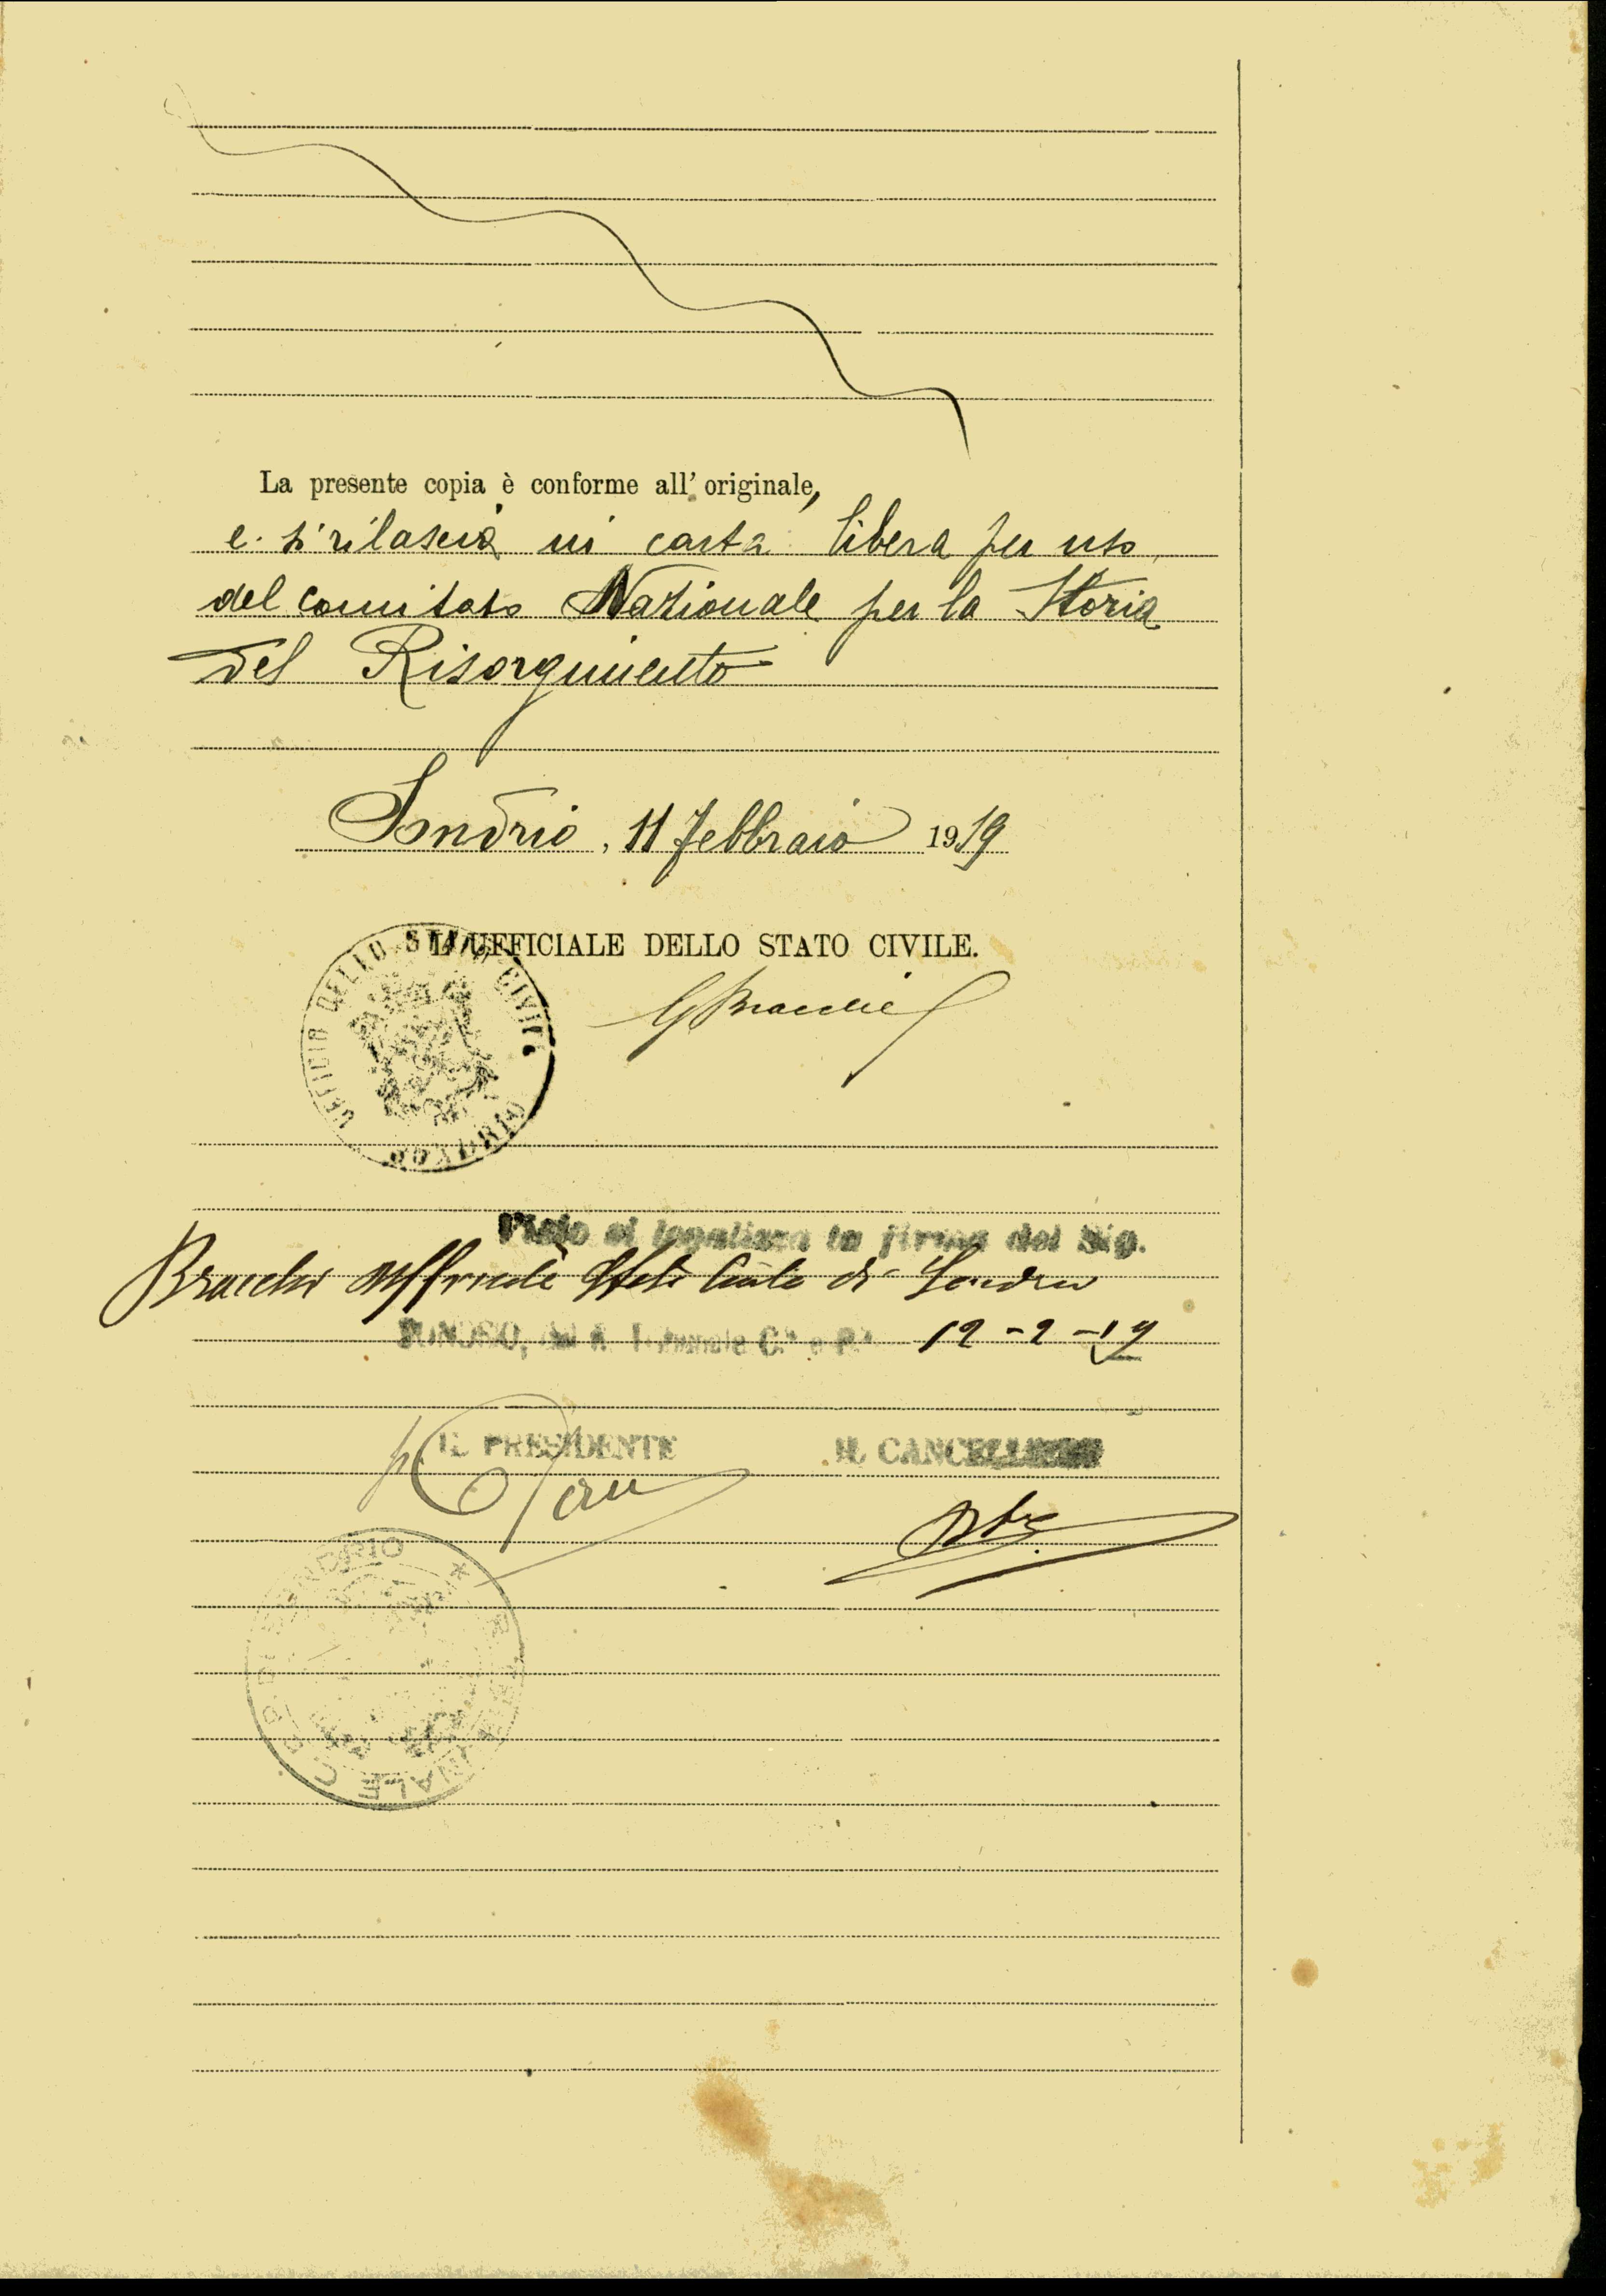 La presente copia è conforme all' originale,
e si rilascia in carta libera per uso
del comitato Nazionale per la Storia
del Risorgimento
Sondrio, 11 Febbraio 1919
L'UFFICIALE DELLO STATO CIVILE.
G Bracchi
UFFICIO DELLO STATO CIVILE
SONDRIO
Visto si legalizza la firma del Sig.
Bracchi Ufficiale Stato Civile di Sondrio
SONDRIO, dal R. Tribunale C.le e P.le 12-2-19
IL PRESIDENTE IL CANCELLIERE
R. TRIBUNALE C. P. DI SONDRIO